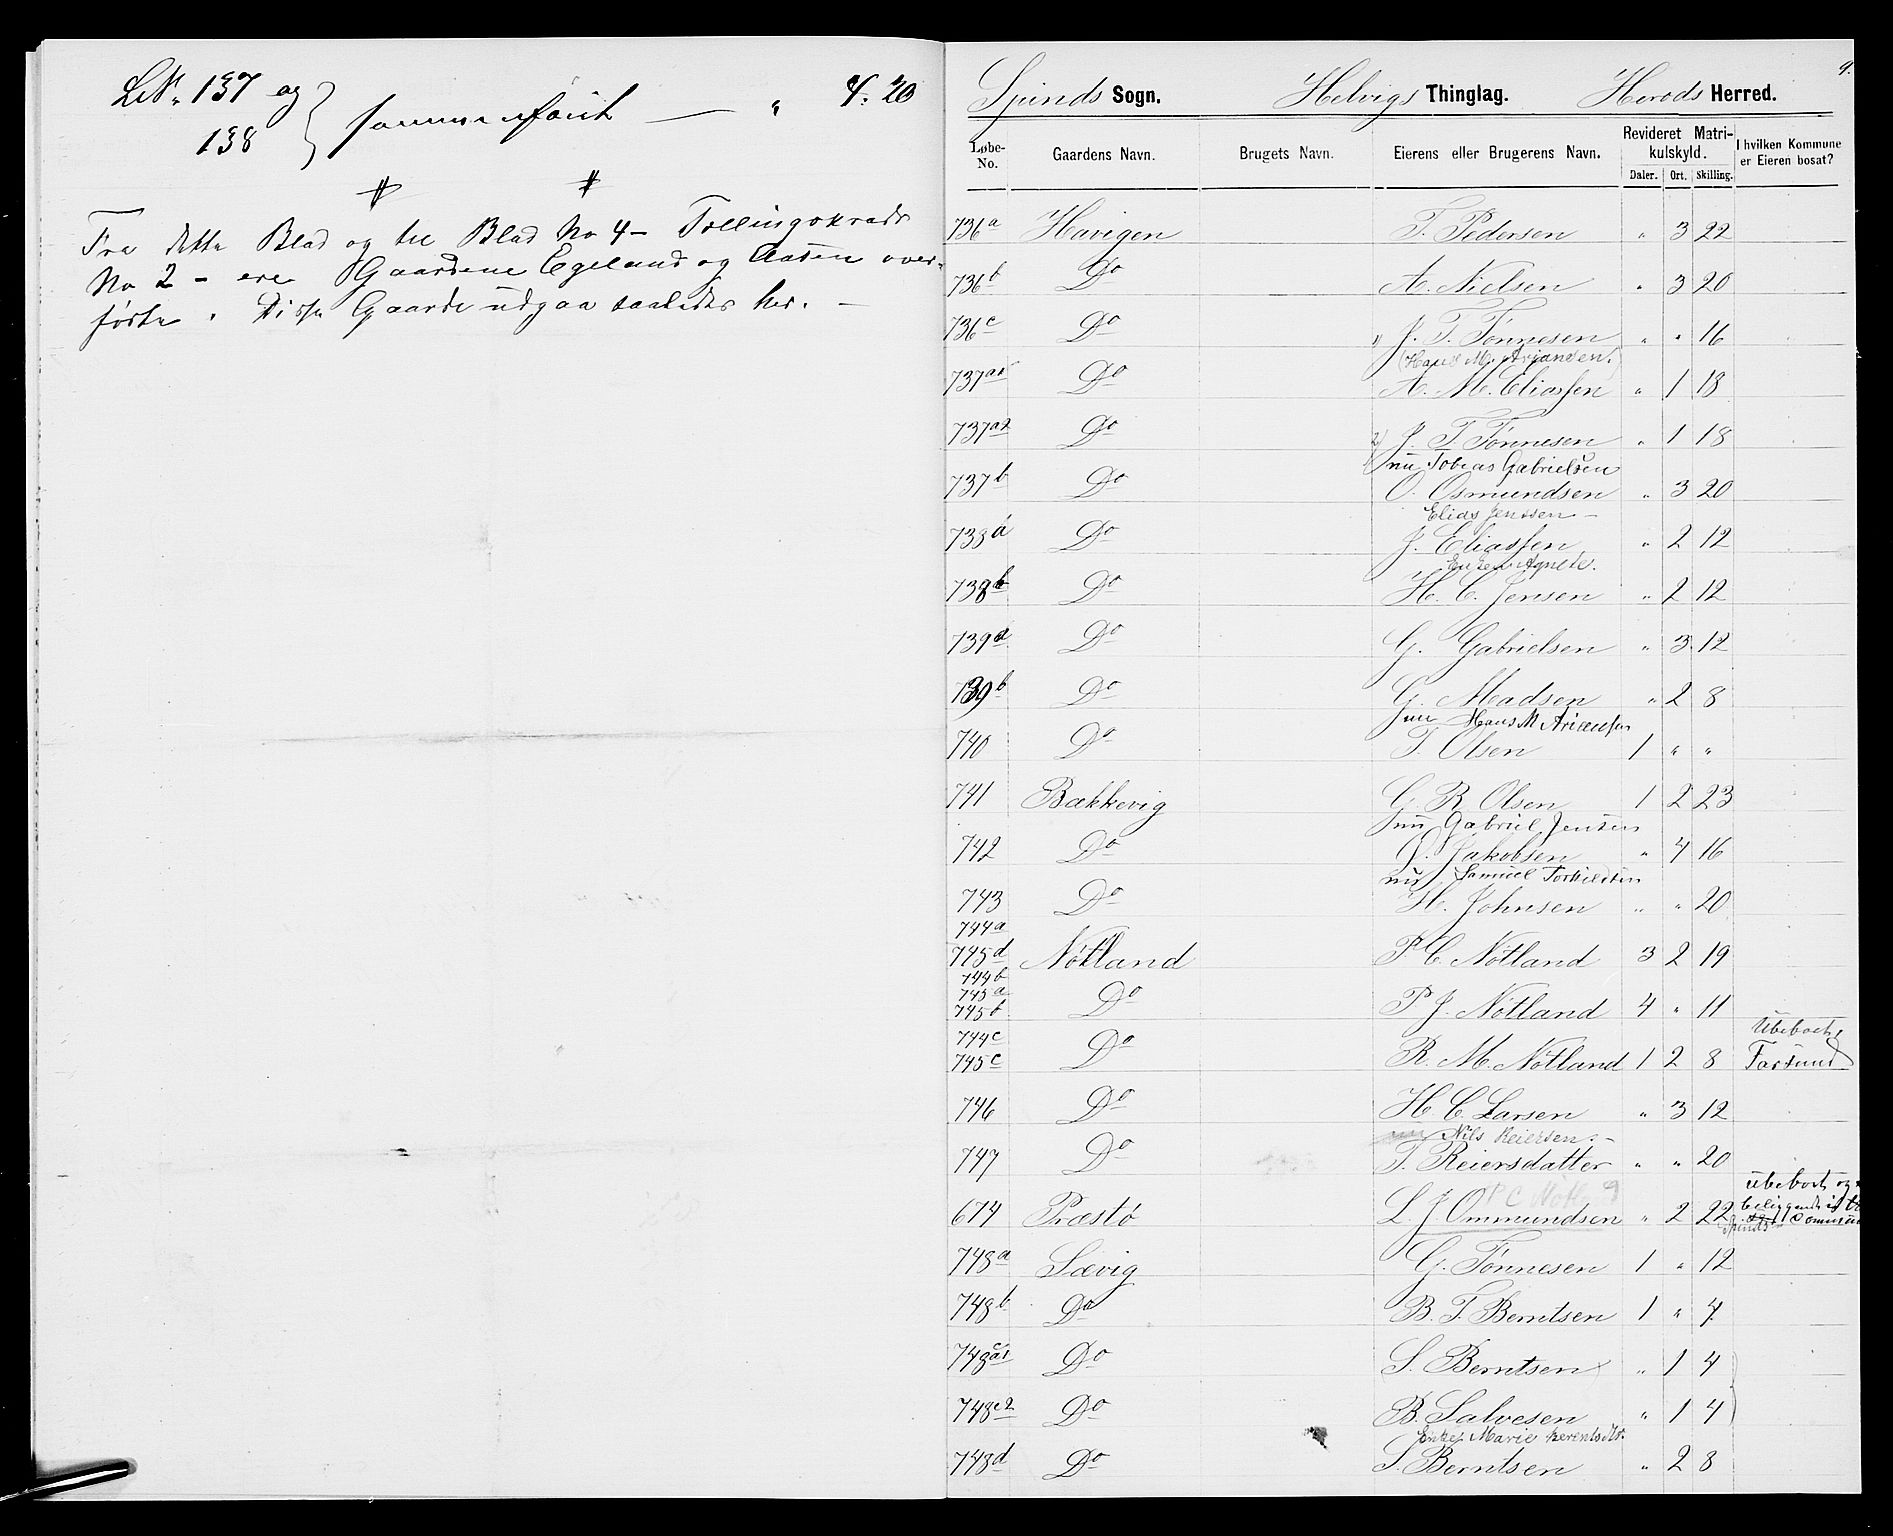 LNr. 137 og
138 } sammenføiet — " 4. 20
Fra dette Blad og til Blad No 4 - Tellingskreds
No 2 - ere Gaardene Egeland og Aasen over-
førte. Disse Gaarde udgaa saaledes her. —
9.
Spinds Sogn. Helvigs Thinglag. Herods Herred.
Løbe-No. Gaardens Navn. Brugets Navn. Eierens eller Brugerens Navn. Revideret Matrikulskyld. I hvilken Kommune er Eieren bosat?
Daler. Ort. Skilling.
736a Havigen T. Pedersen " 3 22
736b Do A. Nielsen " 3 20
736c Do 1) J. T. Tønnesen " " 16
(Hans M. Arjansen.)
737a1 Do A. M. Eliassen " 1 18
737a2 Do 2) J. T. Tønnesen " 1 18
nu Tobias Gabrielsen
737b Do O. Osmundsen " 3 20
Elias Jenssen —
738a Do J. Eliassen " 2 12
Enken Agnete.
738b Do H. C. Jensen " 2 12
739a Do G. Gabrielsen " 3 12
739b Do G. Madsen " 2 8
nu Hans M Ariansen
740 Do T. Olsen 1 " "
741 Bakkevig G. R. Olsen 1 2 23
nu Gabriel Jensen
742 Do J. Jakobsen " 4 16
nu Samuel Torkildsen
743 Do H. Johnsen " " 20
744a
745d Nøtland P C Nøtland 3 2 19
744b
745a
745b Do P J. Nøtland 4 " 11
744c Ubeboet,
745c Do R. M. Nøtland 1 2 8 Farsund
746 Do H. C. Larsen " 3 12
nu Nils Reiersen. —
747 Do T. Reiersdatter " " 20
P C Nøtland ubeboet og
674 Præstø L. J. Ommundsen " 2 22 beliggende i
Spinds
748a Sævig G. Tønnesen 1 " 12
748b Do B. T. Berntsen 1 " 4
748c1 Do S. Berntsen " 1 4
748c2 Do B. Salvesen " 1 4
Enke Marie Berentsdtr.
748d Do S. Berntsen " 2 8